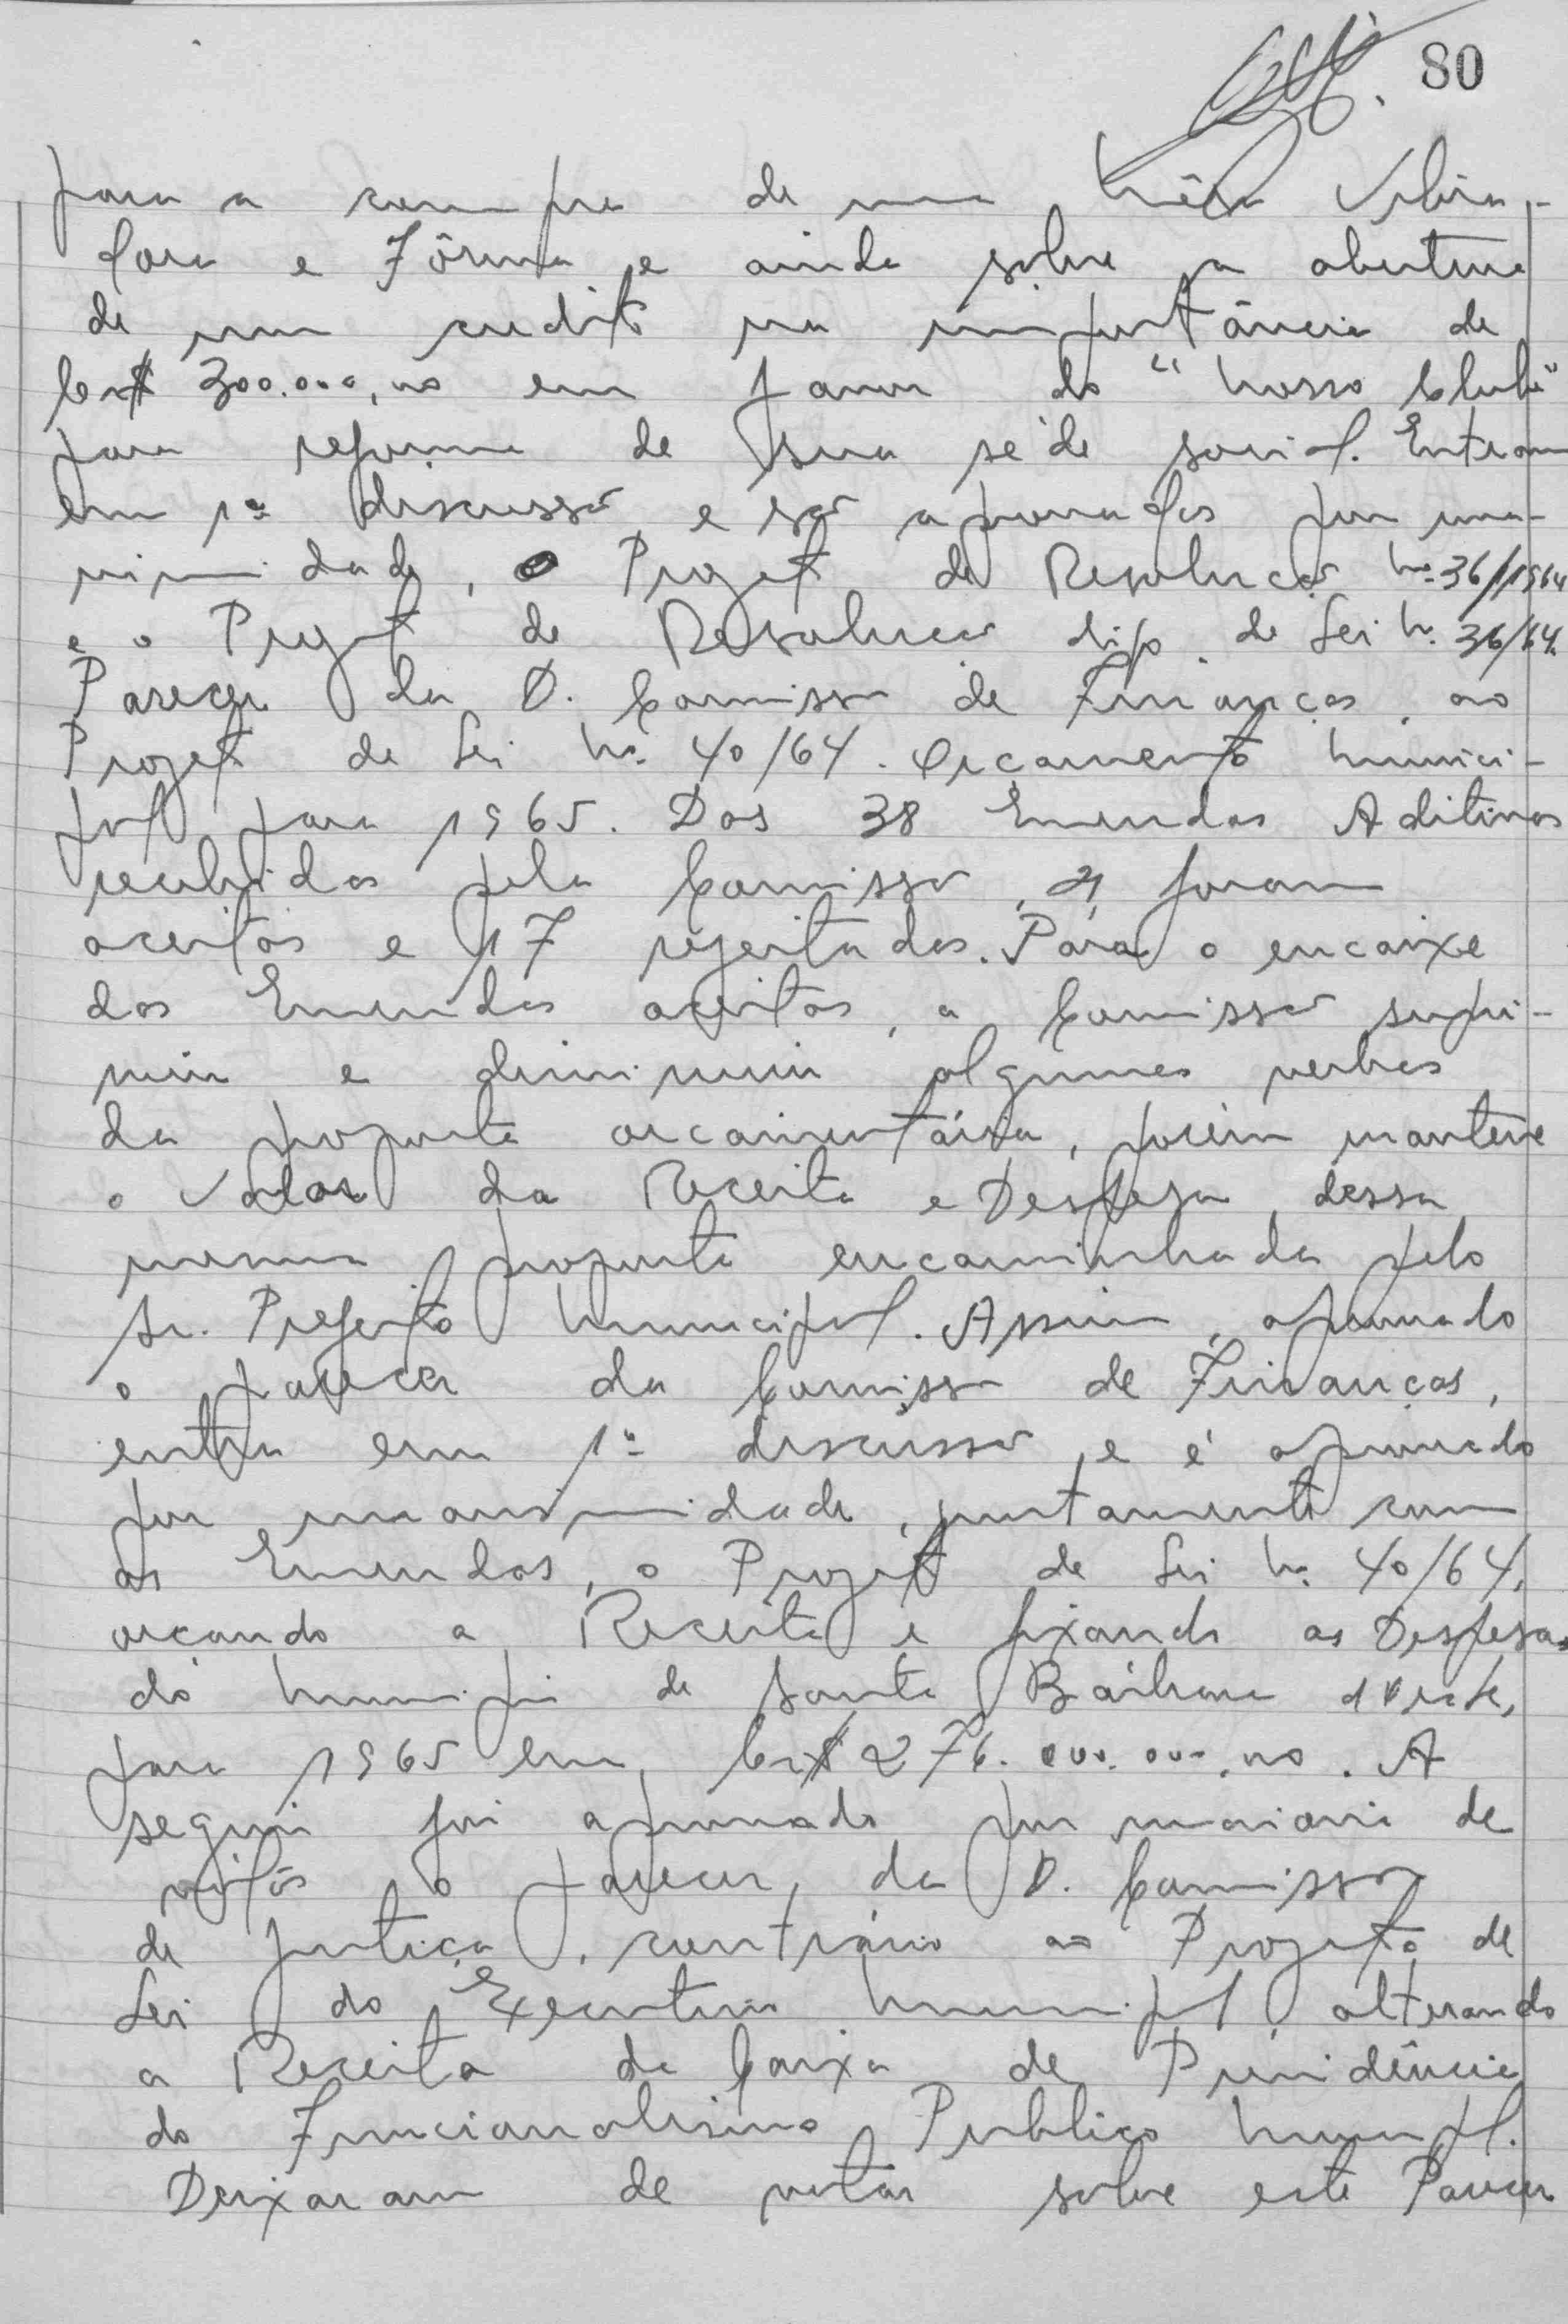 80
para a compra de uma Mêsa Vibra-
dora e Fôrma, e ainda sobre a abertura
de um credito na importância de
Cr$ 300.000,00 em favor do "Nosso Clube"
para reforma de sua séde social. Entram
em 1ª discussão, e são aprovados por una-
nimidade, o Projeto de Resolução Nº 36/1964
e o Projeto de Resolução digo de Lei Nº 36/64.
Parecer da D. Comissão de Finanças, ao
Projeto de Lei Nº 40/64. Orçamento Munici-
pal para 1965. Das 38 Emendas Aditivas
recebidas pela Comissão, 21 foram
aceitas e 17 rejeitadas. Para o encaixe
das Emendas aceitas, a Comissão supri-
miu e diminuiu algumas verbas
da proposta orçamentária, porém manteve
o valor da Receita e Despesa dessa
mesma proposta encaminhada pelo
Sr. Prefeito Municipal. Assim, aprovado
o parecer da Comissão de Finanças,
entra em 1ª discussão, e é aprovado
por unanimidade, juntamente com
as Emendas, o Projeto de Lei Nº 40/64,
orçando a Receita e fixando as Despesas
do Municipio de Santa Bárbara d'Oeste,
para 1965 em Cr$ 276.000.000,00. A
seguir foi aprovado por maioria de
votos o parecer, da D. Comissão
de Justiça, contrário ao Projeto de
Lei do Executivo Municipal, alterando
a Receita da Caixa de Previdência
do Funcionalismo Publico Municipal.
Deixaram de votar sobre este Parecer